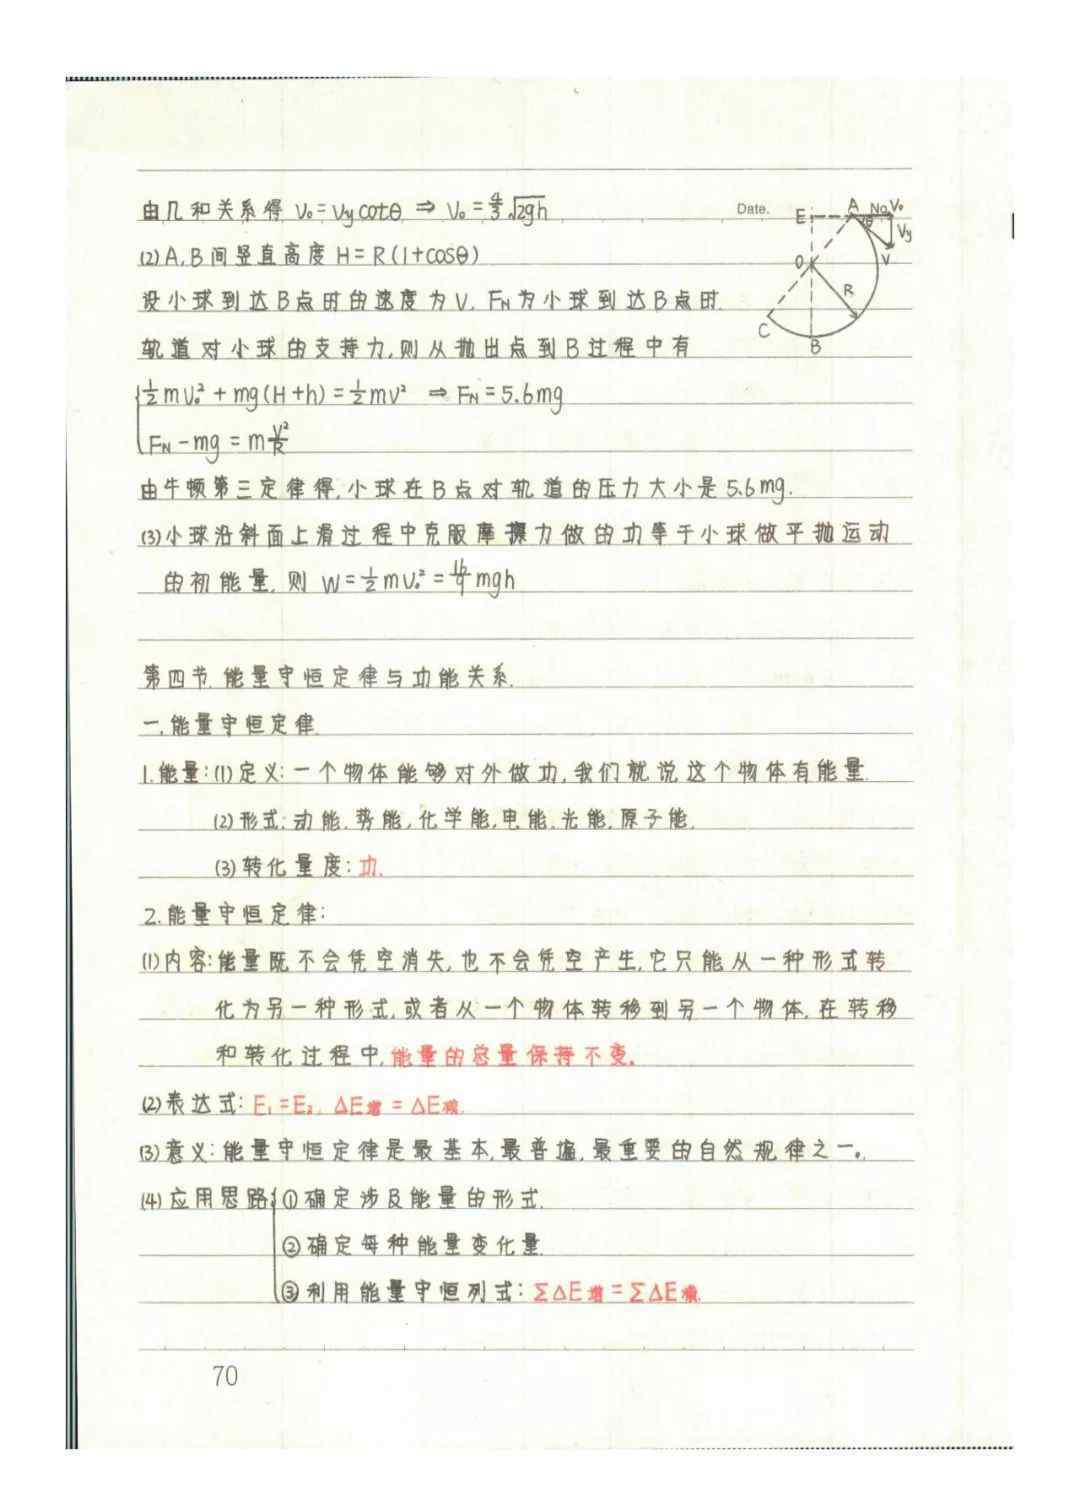 由几和关系得 V₀=Vycotθ ⇒ V₀=4/3√2gh
Date. No.
E A V₀
θ Vy
V
O
R
C
B
(2)A,B间竖直高度H=R(1+cosθ)
设小球到达B点时的速度为V, FN为小球到达B点时
轨道对小球的支持力,则从抛出点到B过程中有
{½mv₀²+mg(H+h)=½mv² ⇒ FN=5.6mg
FN-mg=mV²/R
由牛顿第三定律得,小球在B点对轨道的压力大小是5.6mg.
(3)小球沿斜面上滑过程中克服摩擦力做的功等于小球做平抛运动
的初能量,则 W=½mv₀²=16/9mgh
第四节.能量守恒定律与功能关系.
一.能量守恒定律
1.能量:(1)定义:一个物体能够对外做功,我们就说这个物体有能量.
(2)形式:动能.势能,化学能,电能.光能,原子能.
(3)转化量度:功.
2.能量守恒定律:
(1)内容:能量既不会凭空消失,也不会凭空产生,它只能从一种形式转
化为另一种形式,或者从一个物体转移到另一个物体,在转移
和转化过程中,能量的总量保持不变.
(2)表达式:E₁=E₂, ΔE增=ΔE减.
(3)意义:能量守恒定律是最基本,最普遍,最重要的自然规律之一。
(4)应用思路{①确定涉及能量的形式.
②确定每种能量变化量
③利用能量守恒列式:ΣΔE增=ΣΔE减.
70